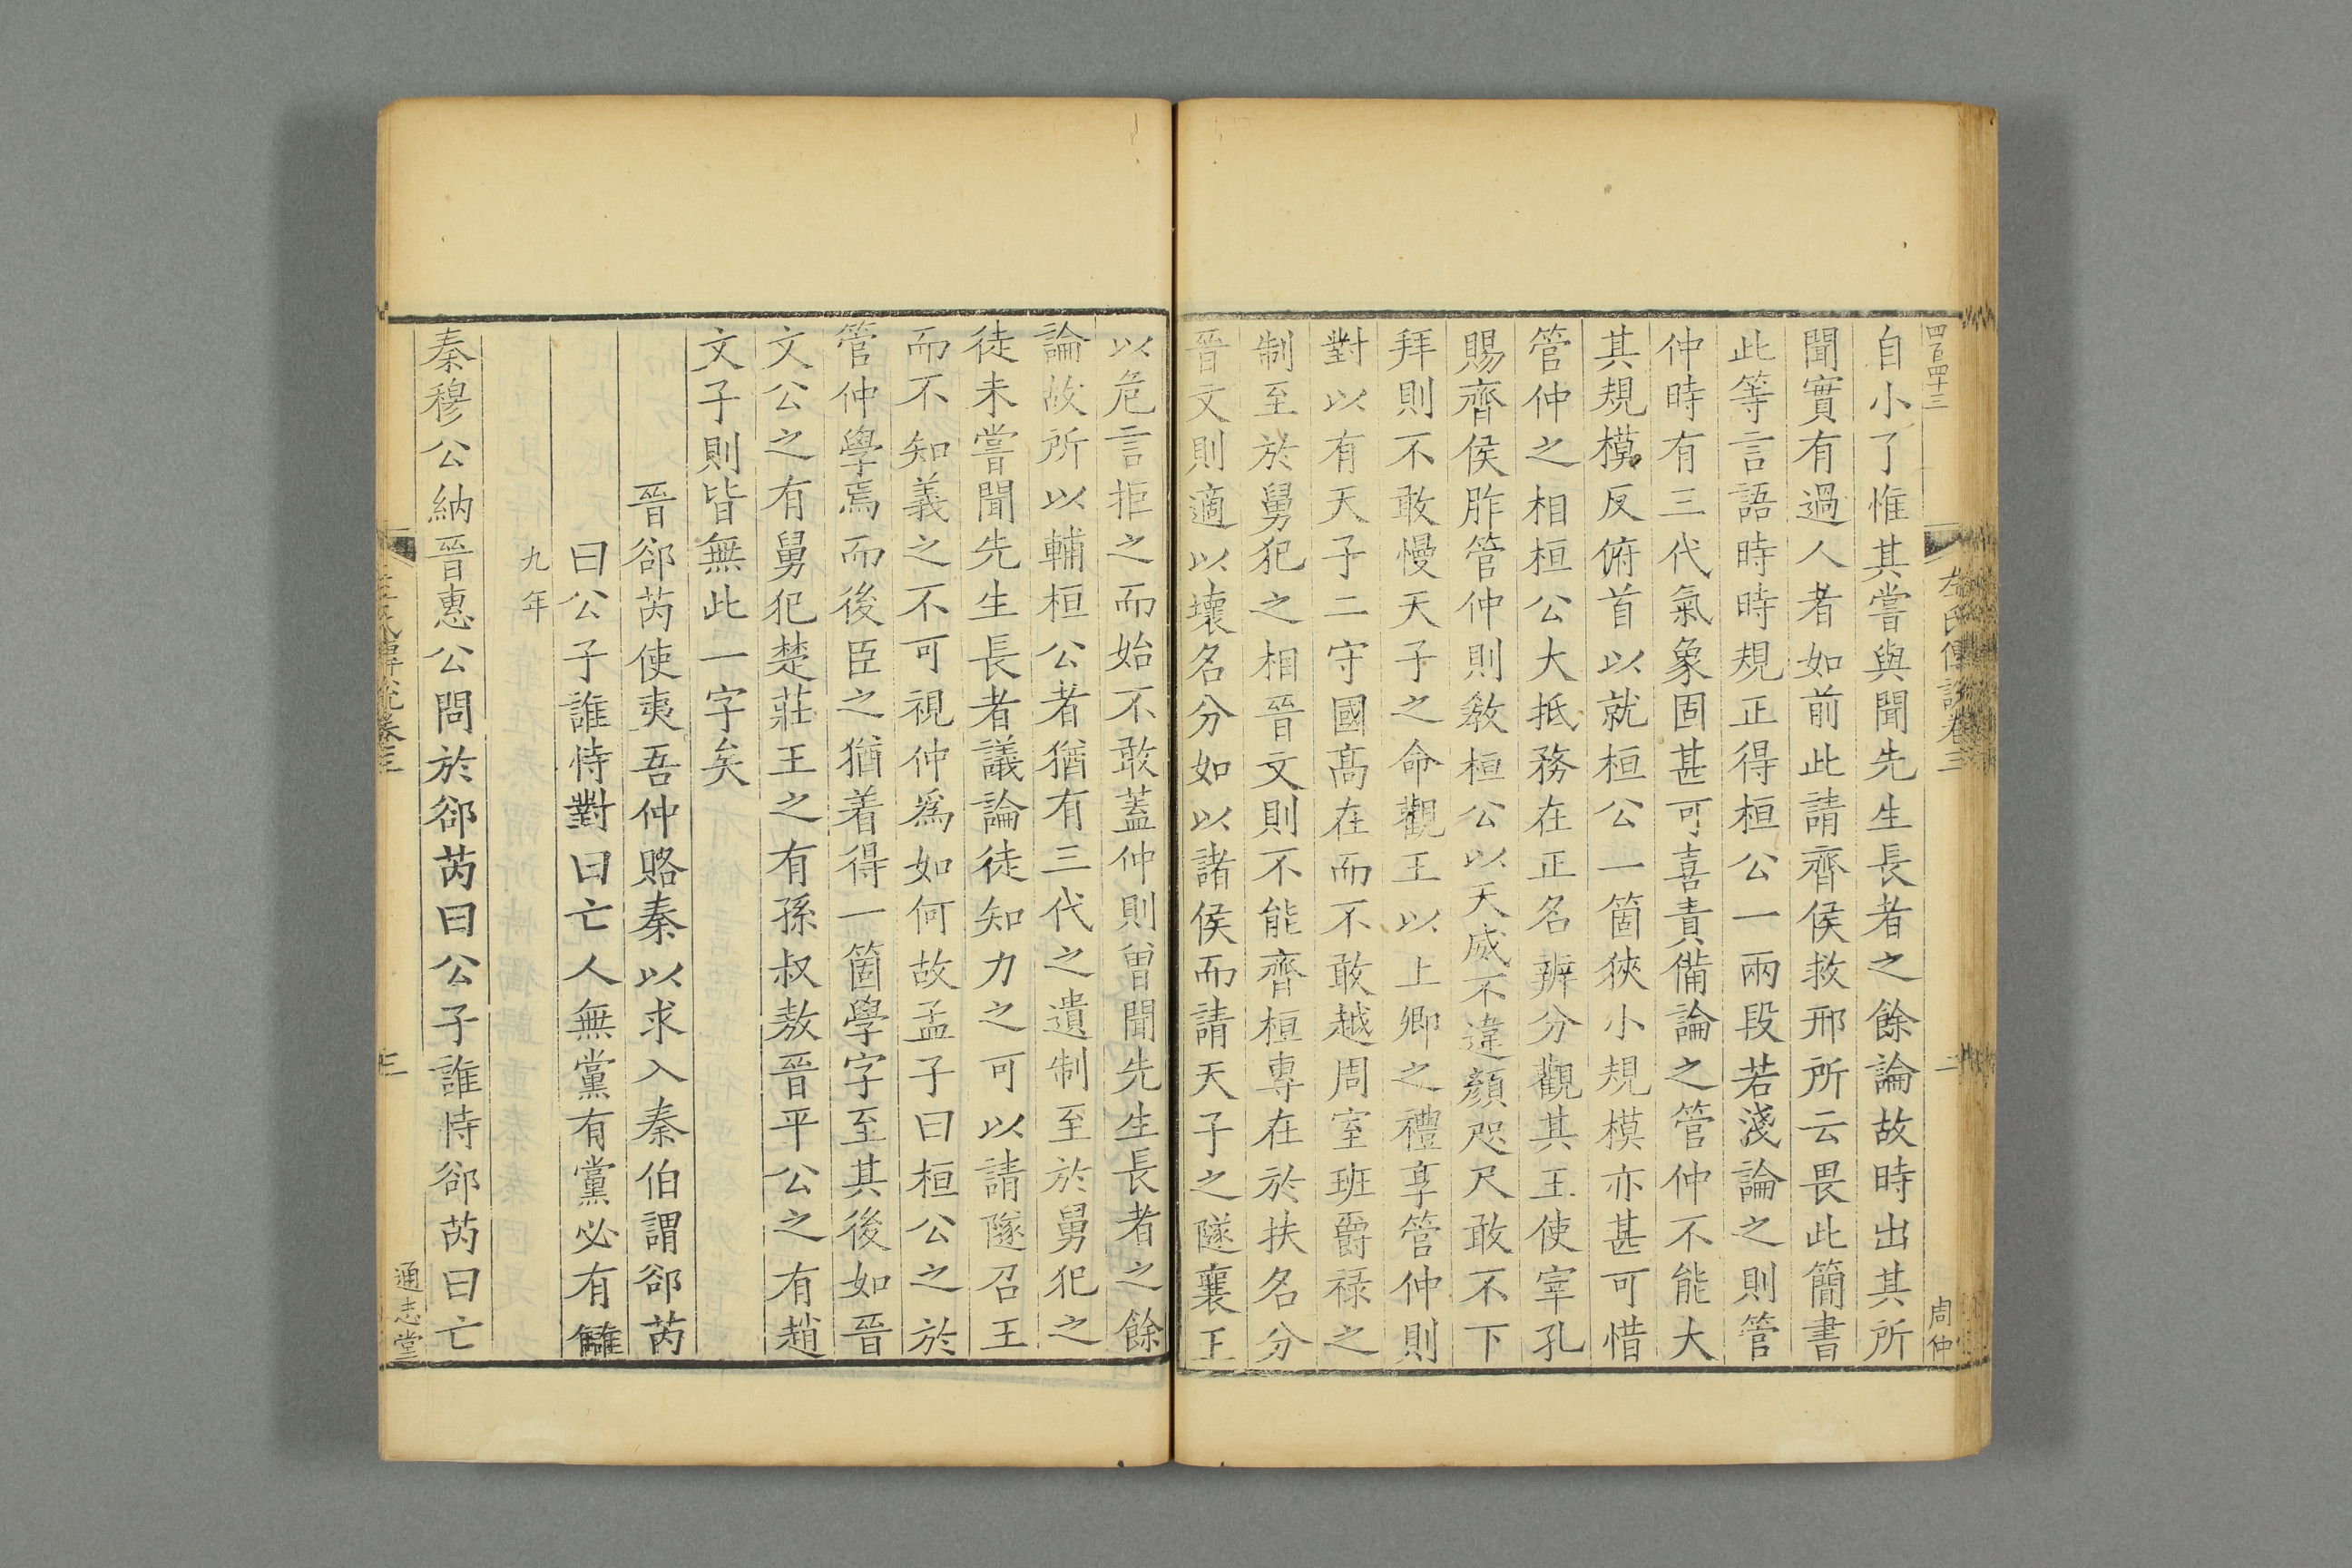 四百四十三
左氏傳說卷三
二
周仲
自小了惟其嘗與聞先生長者之餘論故時出其所
聞實有過人者如前此請齊侯救邢所云畏此簡書
此等言語時時規正得桓公一兩段若淺論之則管
仲時有三代氣象固甚可喜責備論之管仲不能大
其規模反俯首以就桓公一箇狹小規模亦甚可惜
管仲之相桓公大抵務在正名辨分觀其王使宰孔
賜齊侯胙管仲則敎桓公以天威不違顏咫尺敢不下
拜則不敢慢天子之命觀王以上卿之禮享管仲則
對以有天子二守國高在而不敢越周室班爵祿之
制至於舅犯之相晉文則不能齊桓專在於扶名分
晉文則適以壞名分如以諸侯而請天子之隧襄王
以危言拒之而始不敢蓋仲則曾聞先生長者之餘
論故所以輔桓公者猶有三代之遺制至於舅犯之
徒未嘗聞先生長者議論徒知力之可以請隧召王
而不知義之不可視仲爲如何故孟子曰桓公之於
管仲學焉而後臣之猶着得一箇學字至其後如晉
文公之有舅犯楚莊王之有孫叔敖晉平公之有趙
文子則皆無此一字矣
晉郤芮使夷吾仲賂秦以求入秦伯謂郤芮
曰公子誰恃對曰亡人無黨有黨必有讎
九年
秦穆公納晉惠公問於郤芮曰公子誰恃郤芮曰亡
左氏傳說卷三
三
通志堂